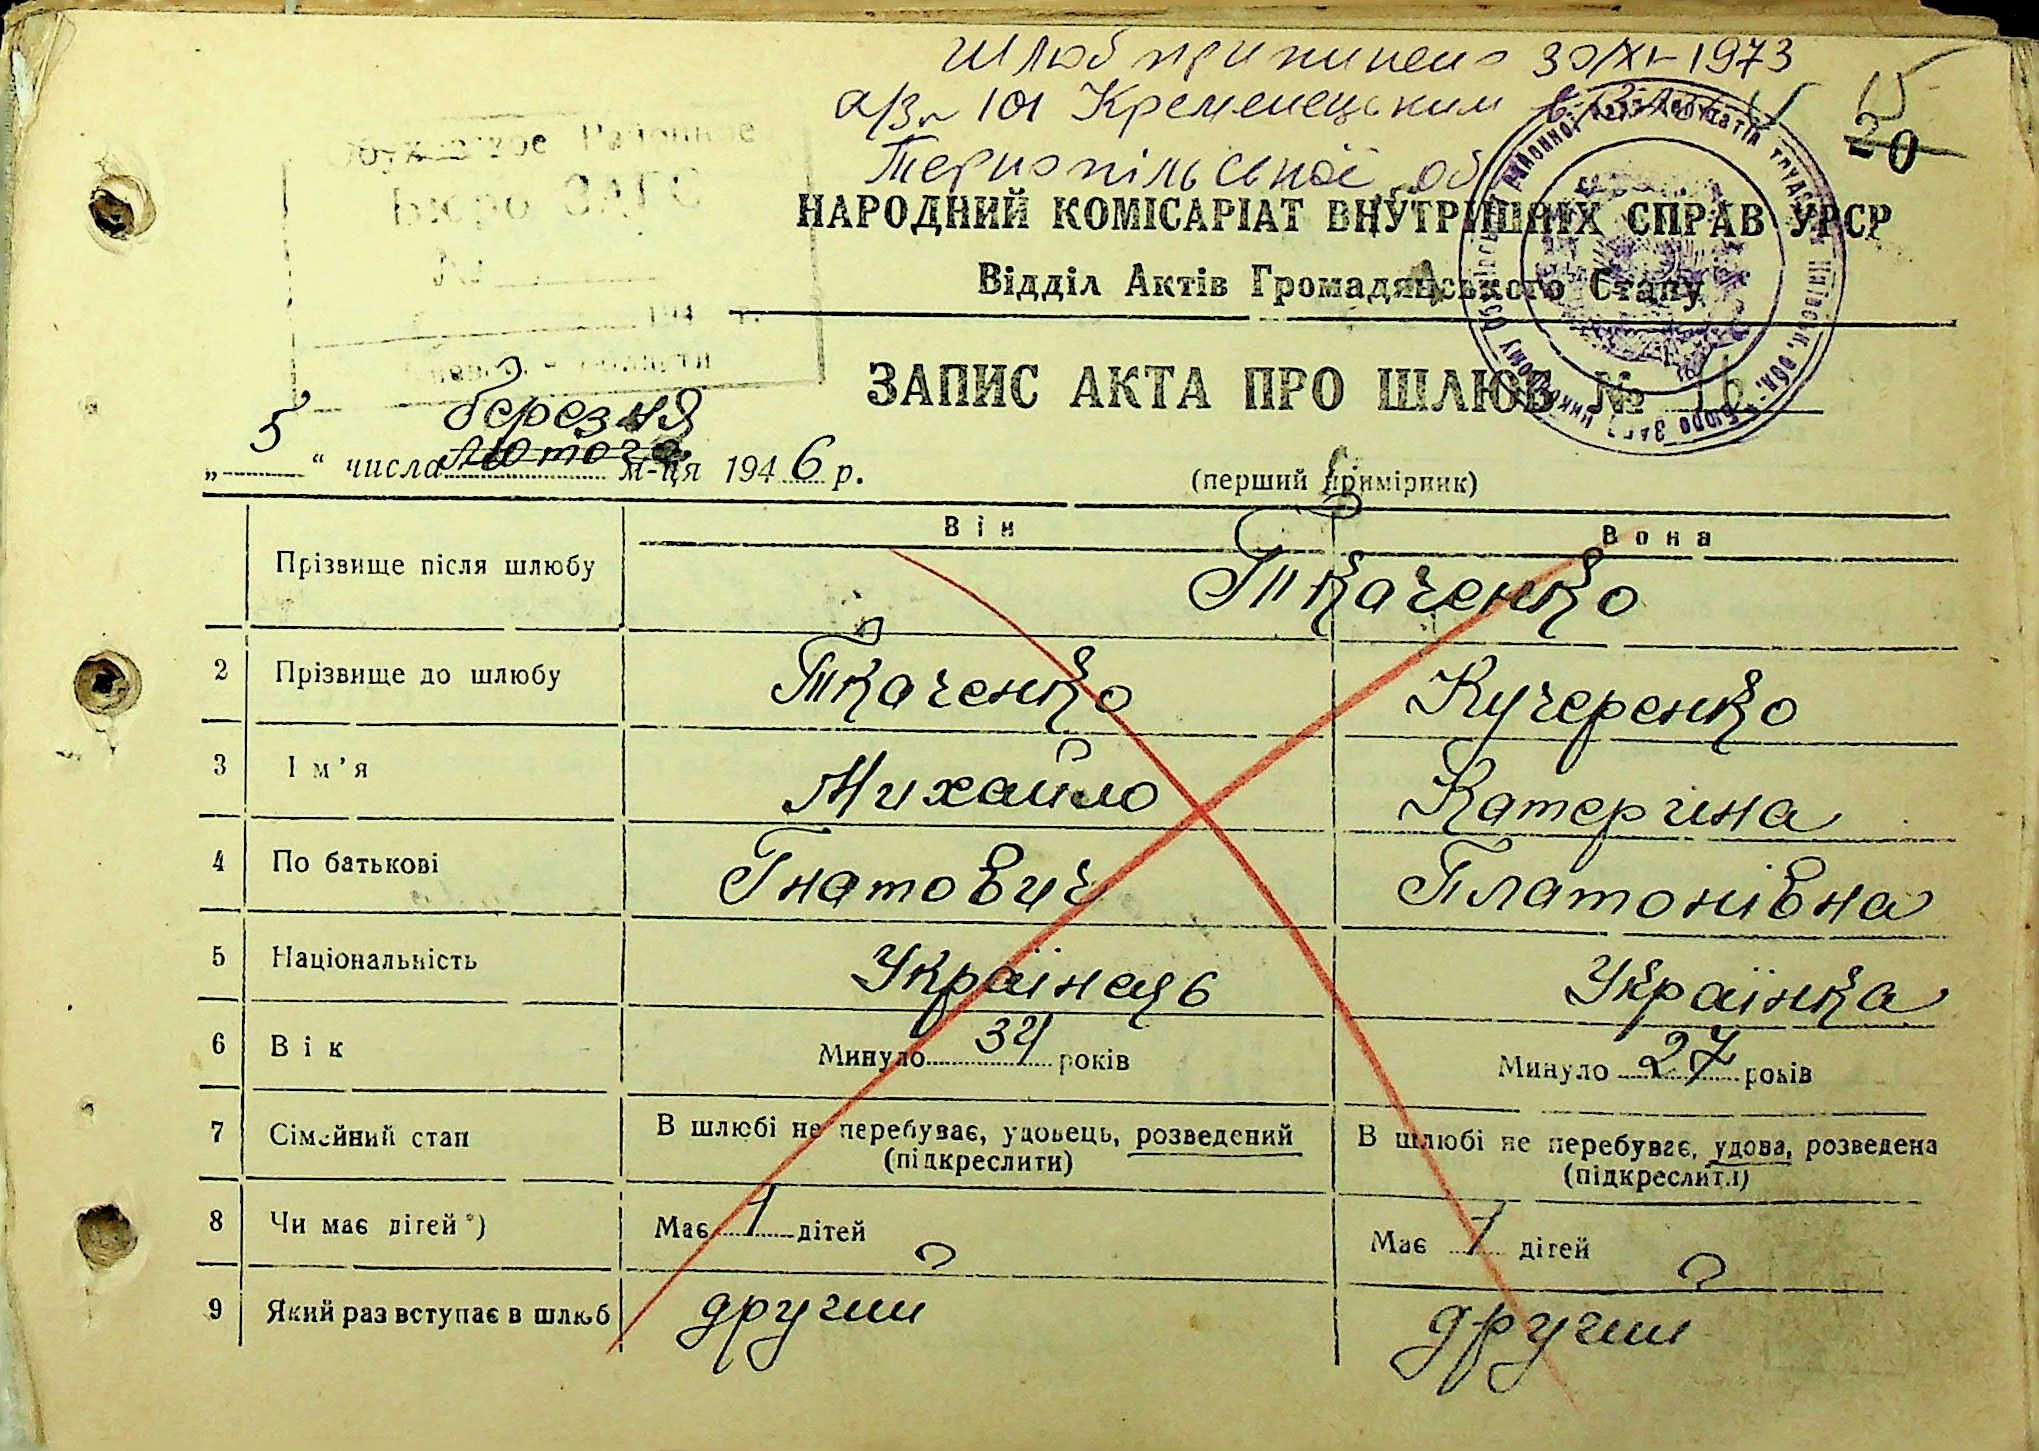 Шлюб припинено 30/XI-1973
а/з 101 Кременецьким
Тернопільської об
15
20
Районное
Бюро ЗАГС
№
194 г.
НАРОДНИЙ КОМІСАРІАТ ВНУТРІШНІХ СПРАВ УРСР
Відділ Актів Громадянського Стану
ЗАПИС АКТА ПРО ШЛЮБ № 16
березня
„5“ числа лютого м-ця 1946 р.
(перший примірник)
Він Вона
Прізвище після шлюбу Ткаченко
2 Прізвище до шлюбу Ткаченко Кучеренко
3 Ім’я Михайло Катерина
4 По батькові Гнатович Платонівна
5 Національність Українець Українка
6 Вік Минуло 34 років Минуло 27 років
7 Сімейний стан В шлюбі не перебуває, удовець, розведений В шлюбі не перебуває, удова, розведена
(підкреслити) (підкреслити)
8 Чи має дітей*) Має 1 дітей Має 1 дітей
9 Який раз вступає в шлюб другий другий